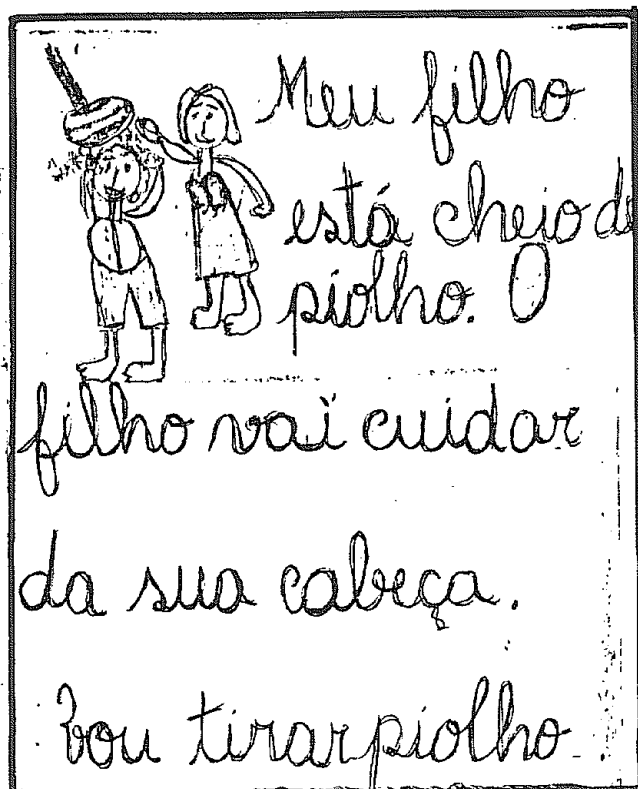 Meu filho
está cheio de
piolho. O
filho vai cuidar
da sua cabeça.
Vou tirar piolho.